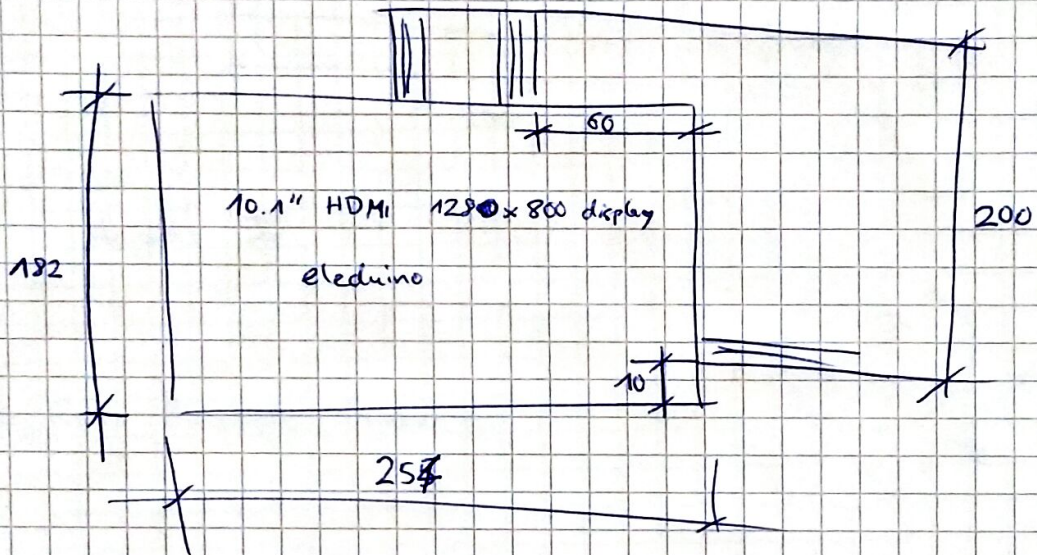 60
10.1" HDMI 1280 x 800 display
200
182
eleduino
10